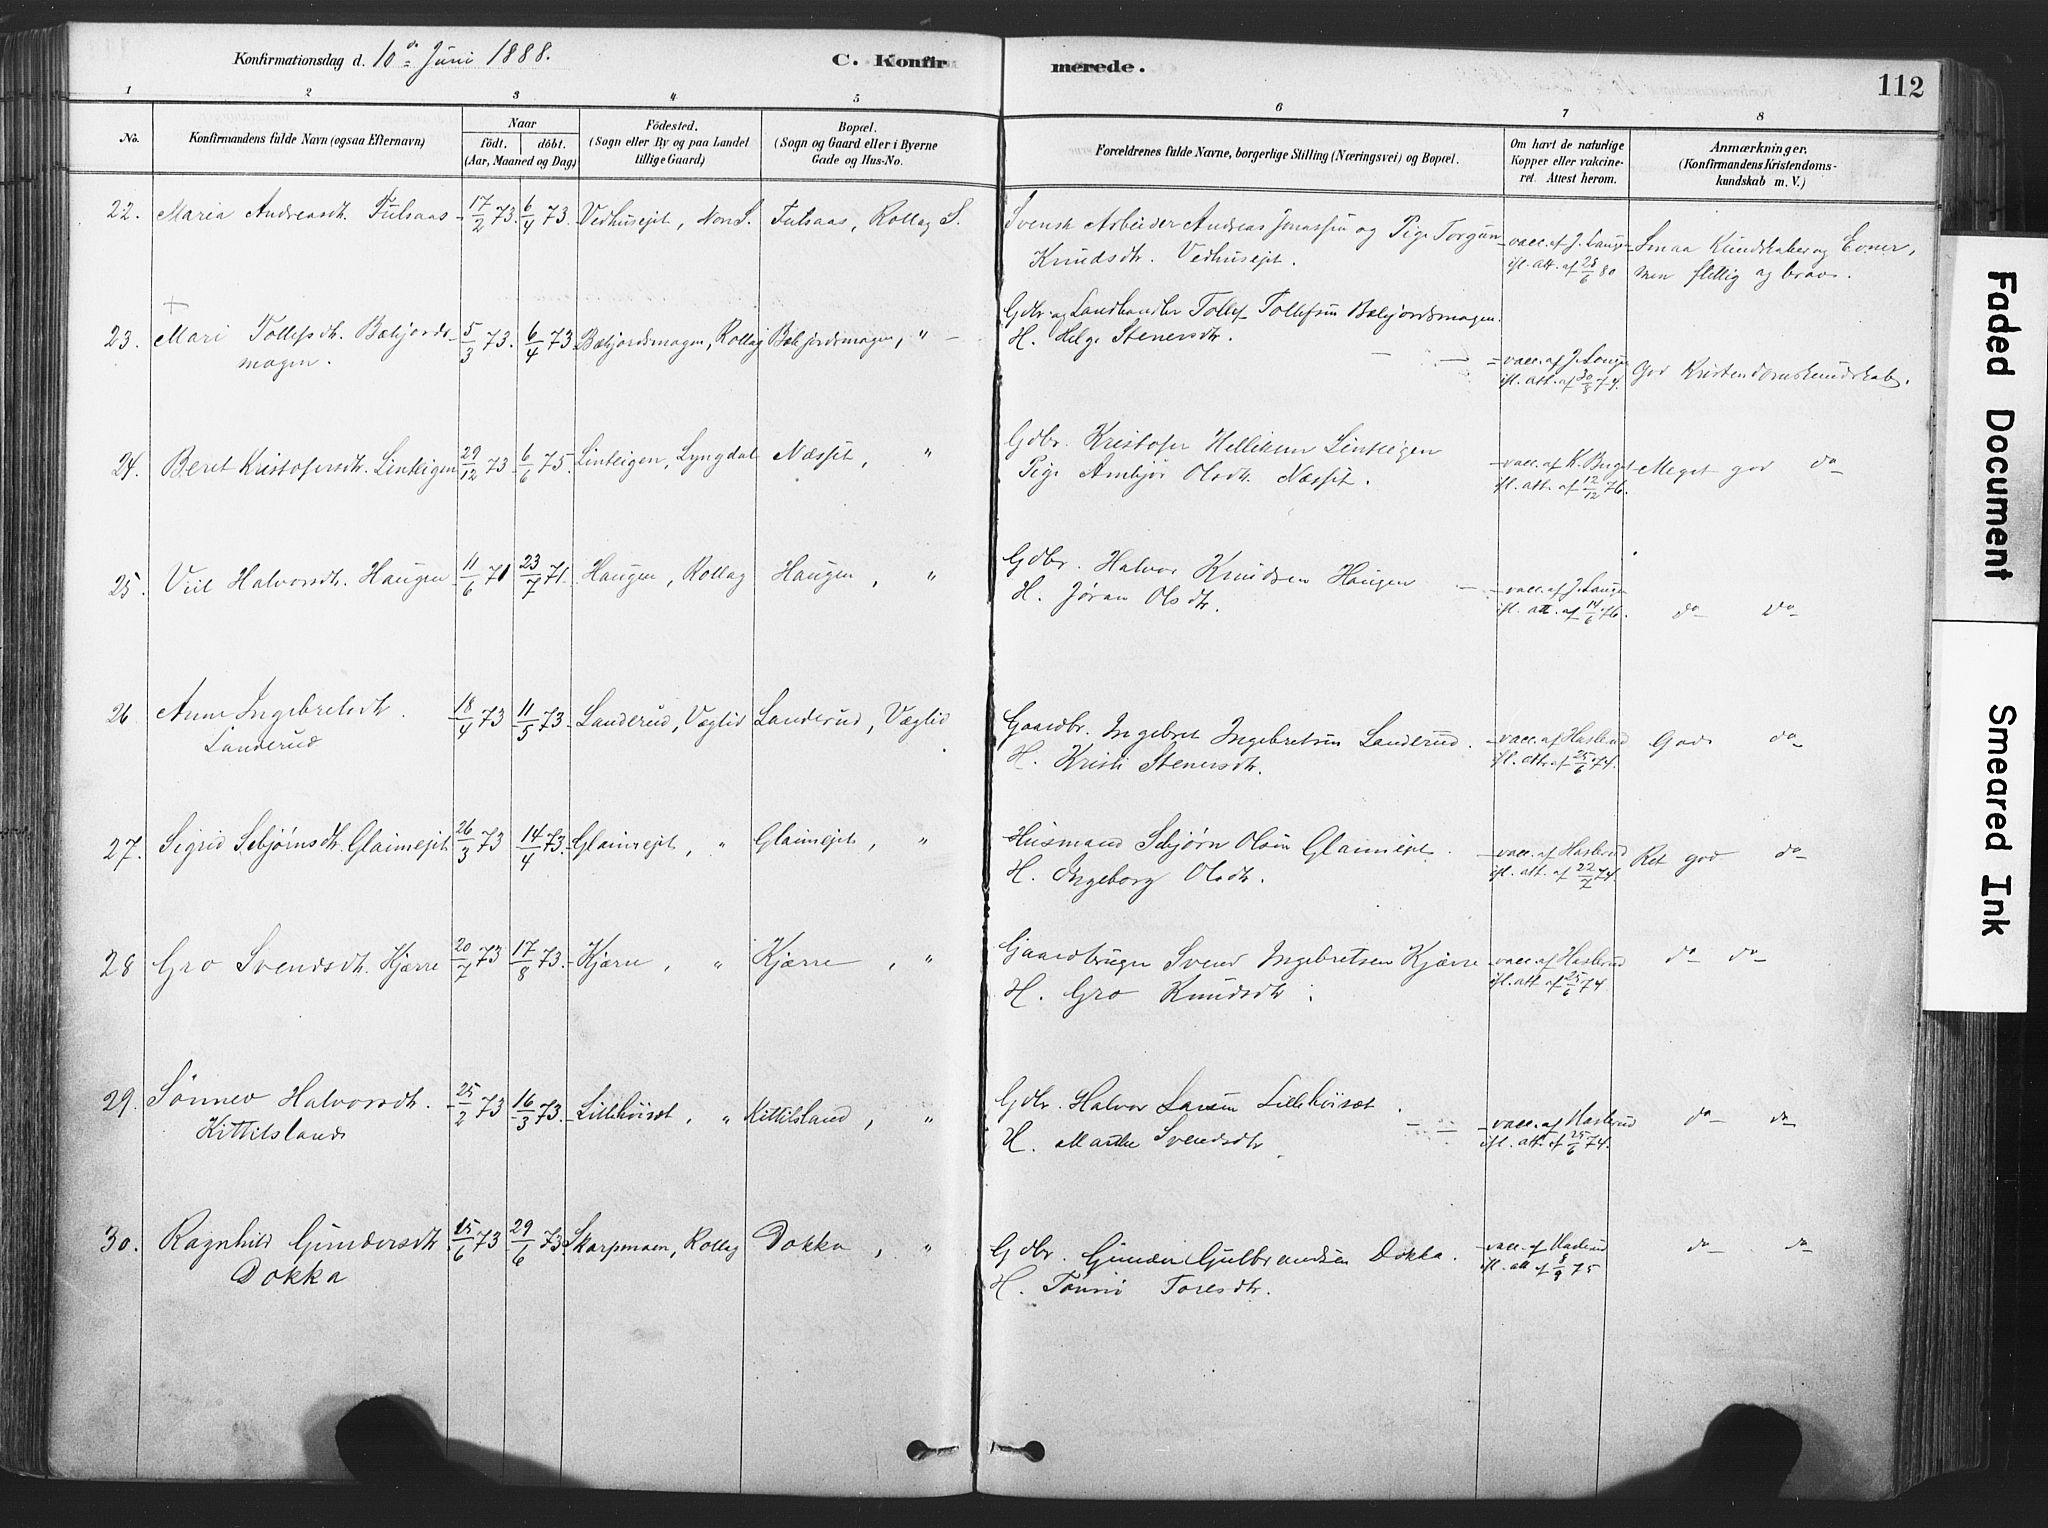 Konfirmationsdag d. 10de Juni 1888.
C. Konfirmerede.
112
1 2 3 4 5 6 7 8
No.
Konfirmandens fulde Navn (ogsaa Efternavn)
Naar
födt. döbt.
(Aar, Maaned og Dag)
Födested.
(Sogn eller By og paa Landet
tillige Gaard)
Bopæl.
(Sogn og Gaard eller i Byerne
Gade og Hus-No.
Forældrenes fulde Navne, borgerlige Stilling (Næringsvei) og Bopæl.
Om havt de naturlige
Kopper eller vakcine-
ret. Attest herom.
Anmærkninger.
(Konfirmandens Kristendoms-
kundskab m. V.)
22. Maria Andreasdt. Fulsaas 17/2 73. 6/4 73. Vedhusejet, Nore S. Fulsaas, Rollag S.
Svensk Arbeider Andreas Jonassen og Pige Torgun
Knudsdt. Vedhusejet.
vacc. af J. Lauge
ifl. att. af 28/6 80
Smaa Kundskaber og Evner,
men flittig og brav.
+
23. Mari Tollefsdt. Bækjords-
magen. 5/3 73. 6/4 73 Bækjordsmagen, Rollag Bækjordsmagen, "
Gdbr og Landhandler Tollef Tollefsen Bækjordsmagen.
H. Helge Stenersdtr.
vacc. af J. Lauge
ifl. att. af 30/8 74.
God Kristendomskundskab.
24. Beret Kristofersdt. Linteigen 29/12 73 6/6 75 Linteigen, Lyngdal Næsset, "
Gdbr. Kristofer Helliksen Linteigen
Pige Ambjør Olsdt. Næsset.
vacc. af K. Buget
ifl. att. af 12/12 76.
Meget god do
25. Viil Halvorsdt. Haugen 11/6 71 23/7 71. Haugen, Rollag Haugen, "
Gdbr. Halvor Knudsen Haugen
H. Jøran Olsdtr.
vacc. af J. Lauge
ifl. att. af 14/6 76.
do do
26. Anne Ingebretsdtr.
Landerud 18/4 73 11/5 73 Landerud, Veglid Landerud, Veglid
Gaardbr. Ingebret Ingebretsen Landerud.
H. Kristi Stenersdtr.
vacc. af Haslerud
ifl. att. af 25/6 74.
God do
27. Sigrid Sebjørnsdt. Glaimejet 26/3 73 14/4 73. Glaimejet, " Glaimejet, "
Husmand Sebjørn Olsen Glaimejet.
H. Ingeborg Olsdtr.
vacc. af Haslerud
ifl. att. af 22/7 74.
Ret god do
28 Gro Svendsdt. Kjærre 20/7 73 17/8 73. Kjærre, " Kjærre, "
Gaardbruger Svend Ingebretsen Kjærre
H. Gro Knudsdtr.
vacc. af Haslerud
ifl. att. af 25/6 74
do do
29. Sønnev Halvorsdt.
Kittilsland 25/2 73 16/3 73. Lillehöiset, " Kittilsland, "
Gdbr. Halvor Larsen Lillehöiset.
H. Marthe Svendsdtr.
vacc. af Haslerud
ifl. att. af 25/6 74.
do do
30. Ragnhild Gundersdtr
Dokka 15/6 73 29/6 73 Skarpmoen, Rollag Dokka, "
Gdbr. Gunder Gulbrandsen Dokka.
H. Toresdtr.
vacc. af Haslerud
ifl. att. af 8/9 75
do do
Faded Document
Smeared Ink